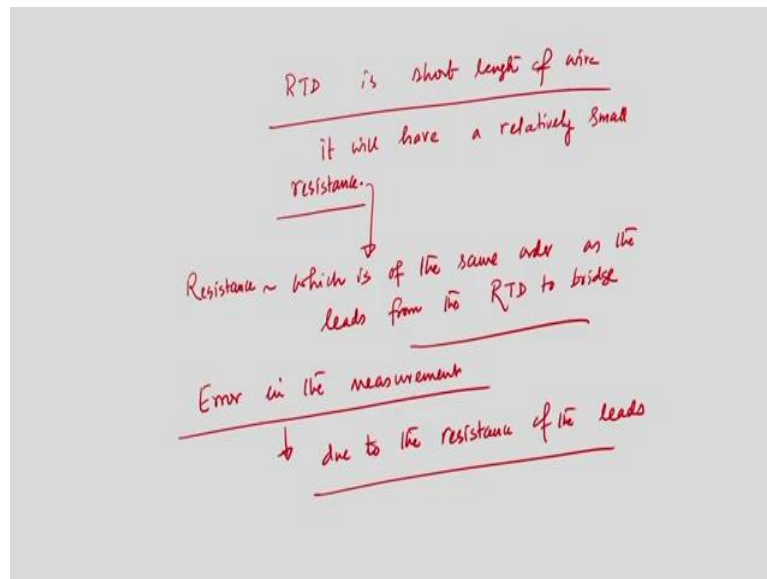 RTD is short length of wire
it will have a relatively small
resistance.
Resistance ~ which is of the same order as the
leads from the RTD to bridge
Error in the measurement
due to the resistance of the leads